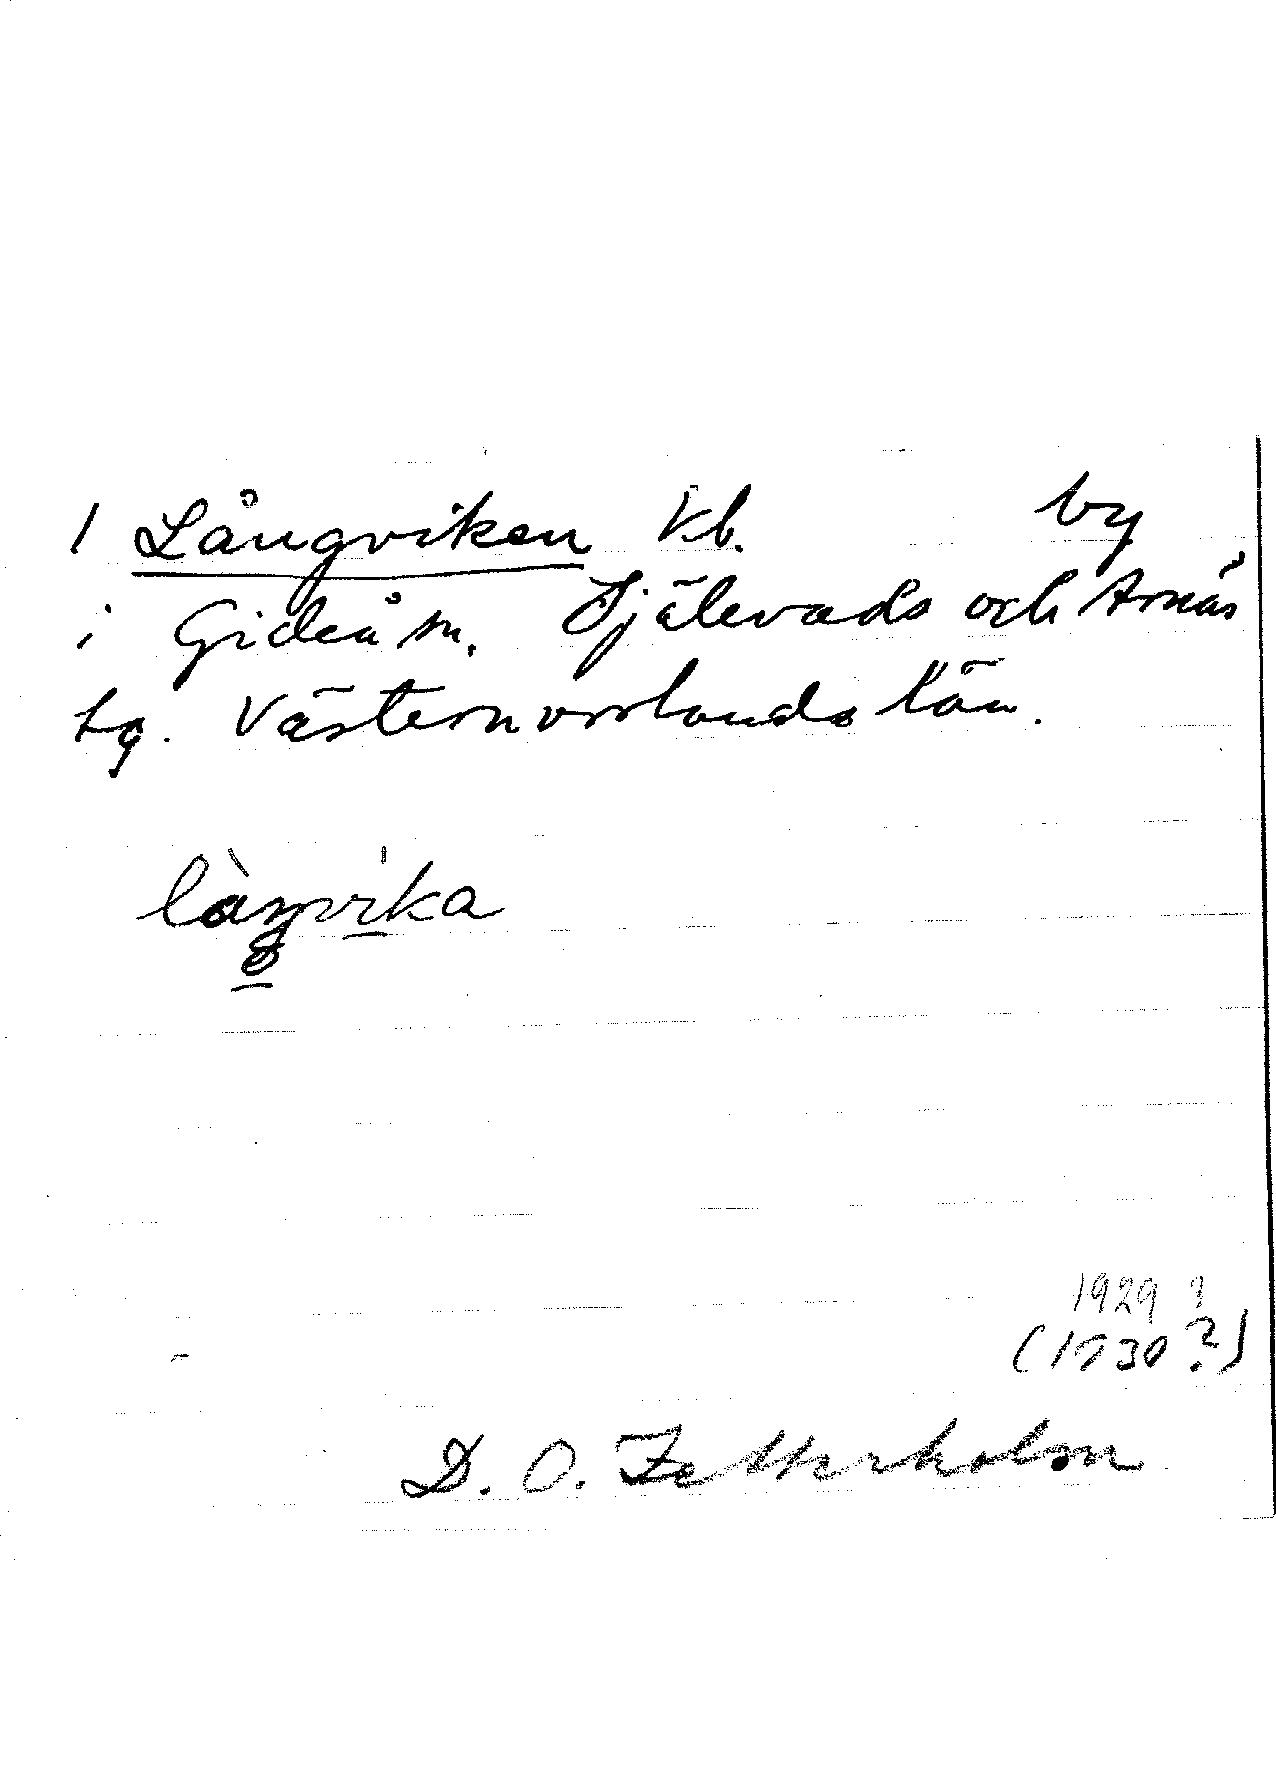 1 Långviken Kb. by
i Gideå sn. Själevads och Arnäs
tg. Västernorrlands län.
låŋvika
1929 ?
(1930?)
D. O. Zetterholm